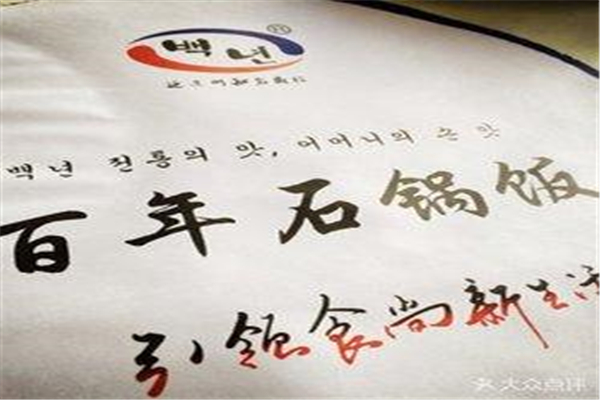 백년®
백년 전통의 맛, 어머니의 손맛
百年石锅饭
引领食尚新生活
大众点评